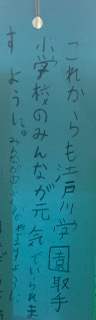 これからも江戸川学園取手
小学校のみんなが元気でいられま
すように。